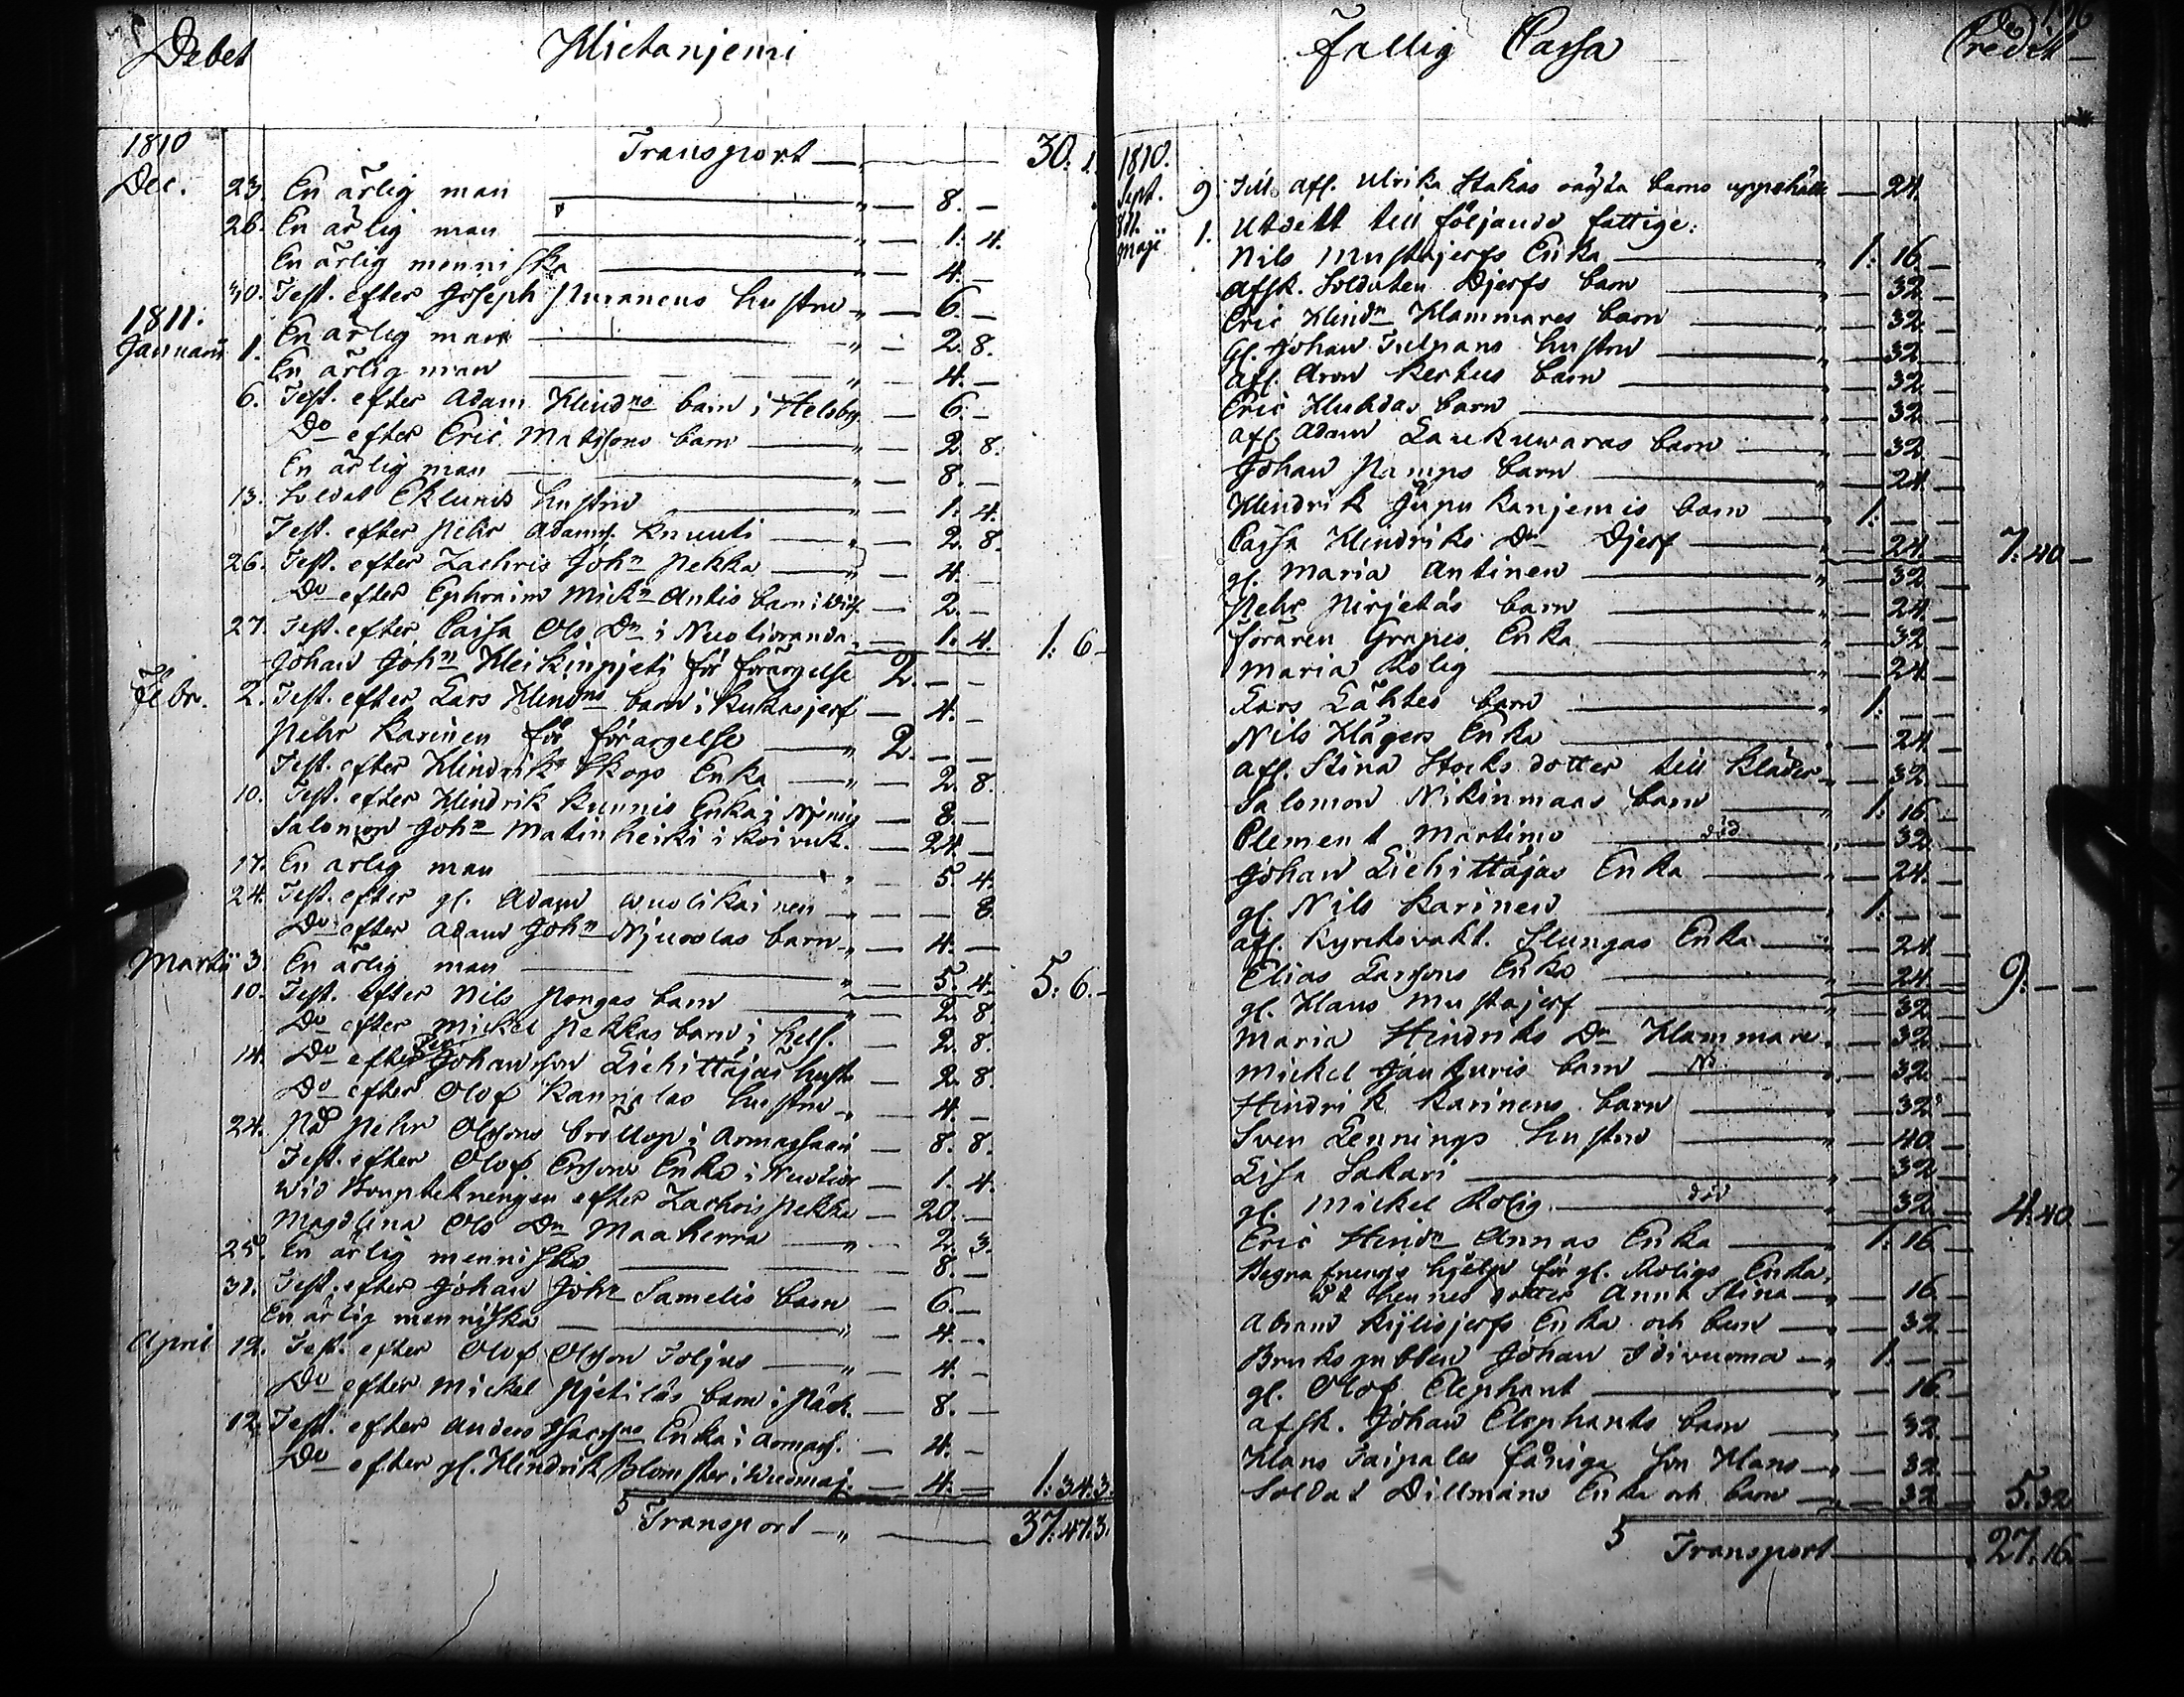 Debet Hietanjemi
1810 Transport — 30. 1.
Dec. 23. En ärlig man — 8. —
26. En ärlig man — 1. 4.
En ärlig menniska — 4. —
30. Test. efter Joseph Puranens hustru — 6. —
1811.
Januarii 1. En ärlig man — 2. 8.
En ärlig man — 4. —
6. Test. efter Adam Hindns barn i Helsby — 6. —
Do efter Eric Matssons barn — 2. 8.
En ärlig man — 8. —
13. Soldat Eklunds hustru — 1. 4.
Test. efter Pehr Adams. Knuuti — 2. 8.
26. Test. efter Zachris John Pekka — 4. —
Do efter Ephraim Mickn Antis barn i — 2. —
27. Test. efter Cajsa Ols Dr i Nuotioranda — 1. 4. 1: 6 —
Johan John Heikinpjeti för förargelse 2. — —
Febr. 2. Test. efter Lars Hindns barn i Kukasjerf — 4. —
Pehr Karinen för förargelse — 2. — —
Test. efter Hindrik Skogs Enka — 2. 8.
10. Test. efter Hindrik Kunnis Enka i Njemis — 8. —
Salomon John Matinheiki i Koivuk. — 24. —
17. En ärlig man — 5. 4.
24. Test. efter gl. Adam Wuolikainen — — 8.
Do efter Adam John Njuoolas barn — 4. —
Martii 3. En ärlig man — 5. 4. 5: 6. —
10. Test. efter Nils Pongas barn — 2. 8.
Do efter Mickel Pekkas barn i Hels. — 2. 8.
14. Do efter Johansson Liehittäjäs hustr. — 2. 8.
Do efter Olof Kannalas hustru — 4. —
24. På Pehr Olssons bröllop i Armassaari — 8. 8.
Test. efter Olof Erssons Enka i Nuotior — 1. 4.
Wid Bouptekningen efter Zachris Pekka — 20. —
Magdlena Ols Dr Maaherra — 2. 3.
25. En ärlig menniska — 8. —
31. Test. efter Johan Johns Samelis barn — 6. —
En ärlig menniska — 4. —
April 12. Test. efter Olof Olsson Toljus — 4. —
Do efter Mickel Pjetiläs barn i Päck. — 8. —
12. Test. efter Anders Isacsns Enka i Armass. — 4. —
Do efter gl. Hindrik Blomster i Wuomaj. — 4. — 1: 34. 3.
Transport — 37: 47. 3.
Fattig Cassa Credit
1810.
Sept. 9. Till afl. Ulrika Stakas oägta barns uppehälle — 24.
811. Maji 1. Utdelt till följande fattige:
Nils Mustajerfs Enka — 1: 16. —
Afsk. Soldaten Djerfs barn — 32. —
Eric Hindn Hammares barn — 32. —
Gl. Johan Tulpans hustru — 32. —
Afl. Aron Kerttus barn — 32. —
Eric Huhdas barn — 32. —
Afl. Adam Laukuwaras barn — 32. —
Johan Pamps barn — 24. —
Hindrik Jupukanjemis barn — 1. — —
Cajsa Hindriks Dr Djerf — 24. — 7: 40 —
gl. Maria Antinen — 32 —
Pehr Pirjetäs barn — 24. —
Föraren Grapes Enka — 32. —
Maria Rolig — 24. —
Lars Lähtes barn — 1. — —
Nils Hägers Enka — 24. —
Afl. Stina Stocks dotter till kläder — 32 —
Salomon Nikinmaas barn — 1: 16. —
Clement Martimo — död — 32. —
Johan Liehittäjäs Enka — 24. —
gl. Nils Karinen — 1. — —
afl. Kyrckovakt. Slungas Enka — 24. —
Elias Larssons Enka — 24. — 9: — —
gl. Hans Mustajerf — 32 —
Maria Hindriks Dr Hammare — 32. —
Mickel Jaukuris barn — 32. —
Hindrik Karinens barn — 32. —
Sven Lennings hustru — 40. —
Lisa Sakari — 32. —
gl. Mickel Rolig — död — 32. — 4: 40. —
Eric Hindn Annas Enka — 1: 16. —
Begrafnings hjelp för gl. Roligs Enka,
dt hennes dotter Anna Stina — 16. —
Abram Kyllijerfs Enka och barn — 32 —
Bruksgubben Johan Idivuoma — 1: — —
gl. Olof Elephant — 16. —
afsk. Johan Elephants barn — 32. —
Hans Taipales fåniga Son Hans — 32. —
Soldat Dillmans Enka och barn — 32 — 5: 32
Transport — 27: 16. —